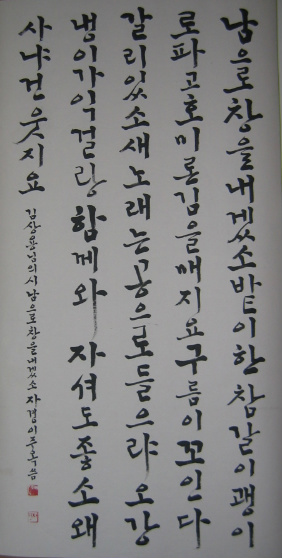 남으로창을내겠소밭이한참갈이괭이
로파고호미론김을매지요구름이꼬인다
갈리있소새노래는공으로들으랴오강
냉이가익걸랑함께와자셔도좋소왜
사냐건웃지요
김상용님의시남으로창을내겠소자경이주옥씀